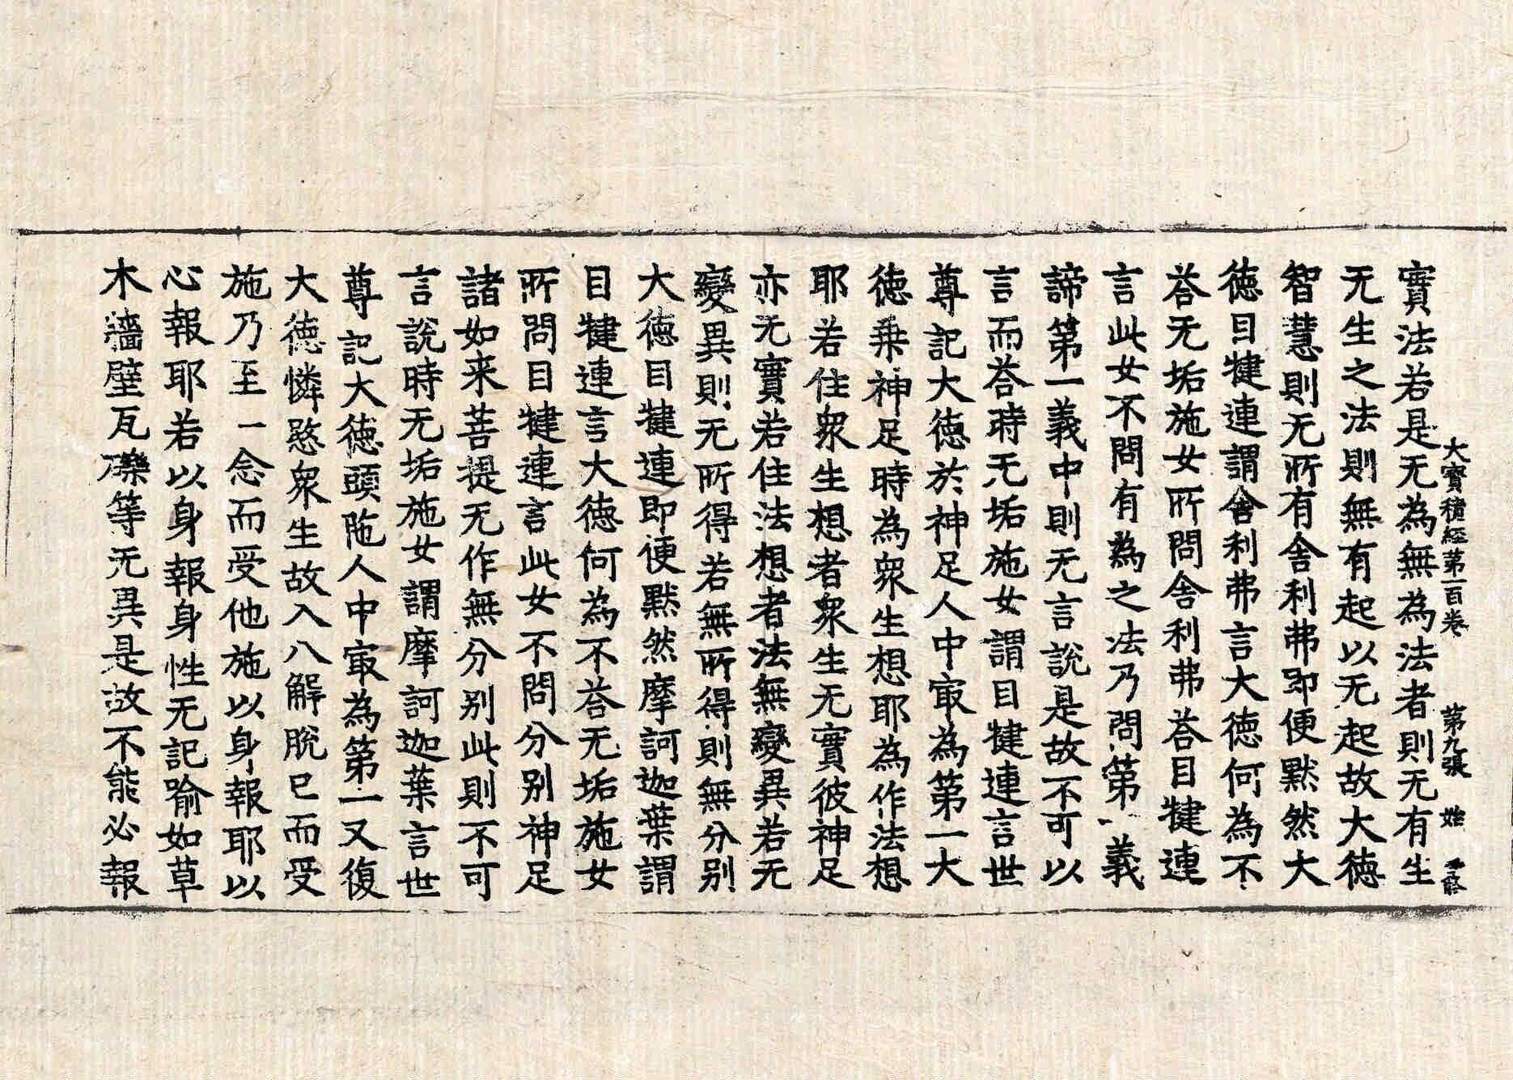 大寳積經第一百卷 第九張 始
實法若是无為無為法者則无有生
无生之法則無有起以无起故大徳
智慧則无所有舍利弗即便黙然大
徳目揵連謂舍利弗言大徳何為不
荅无垢施女所問舍利弗荅目揵連
言此女不問有為之法乃問第一義
諦第一義中則无言說是故不可以
言而荅時无垢施女謂目揵連言世
尊記大徳於神足人中㝡為第一大
徳乗神足時為衆生想耶為作法想
耶若住衆生想者衆生无實彼神足
亦无實若住法想者法無變異若无
變異則无所得若無所得則無分別
大徳目揵連即便黙然摩訶迦葉謂
目揵連言大徳何為不荅无垢施女
所問目揵連言此女不問分別神足
諸如来菩提无作無分別此則不可
言說時无垢施女謂摩訶迦葉言世
尊記大徳頭陁人中㝡為第一又復
大徳憐愍衆生故入八解脫已而受
施乃至一念而受他施以身報耶以
心報耶若以身報身性无記喻如草
木牆壁瓦礫等无異是故不能必報